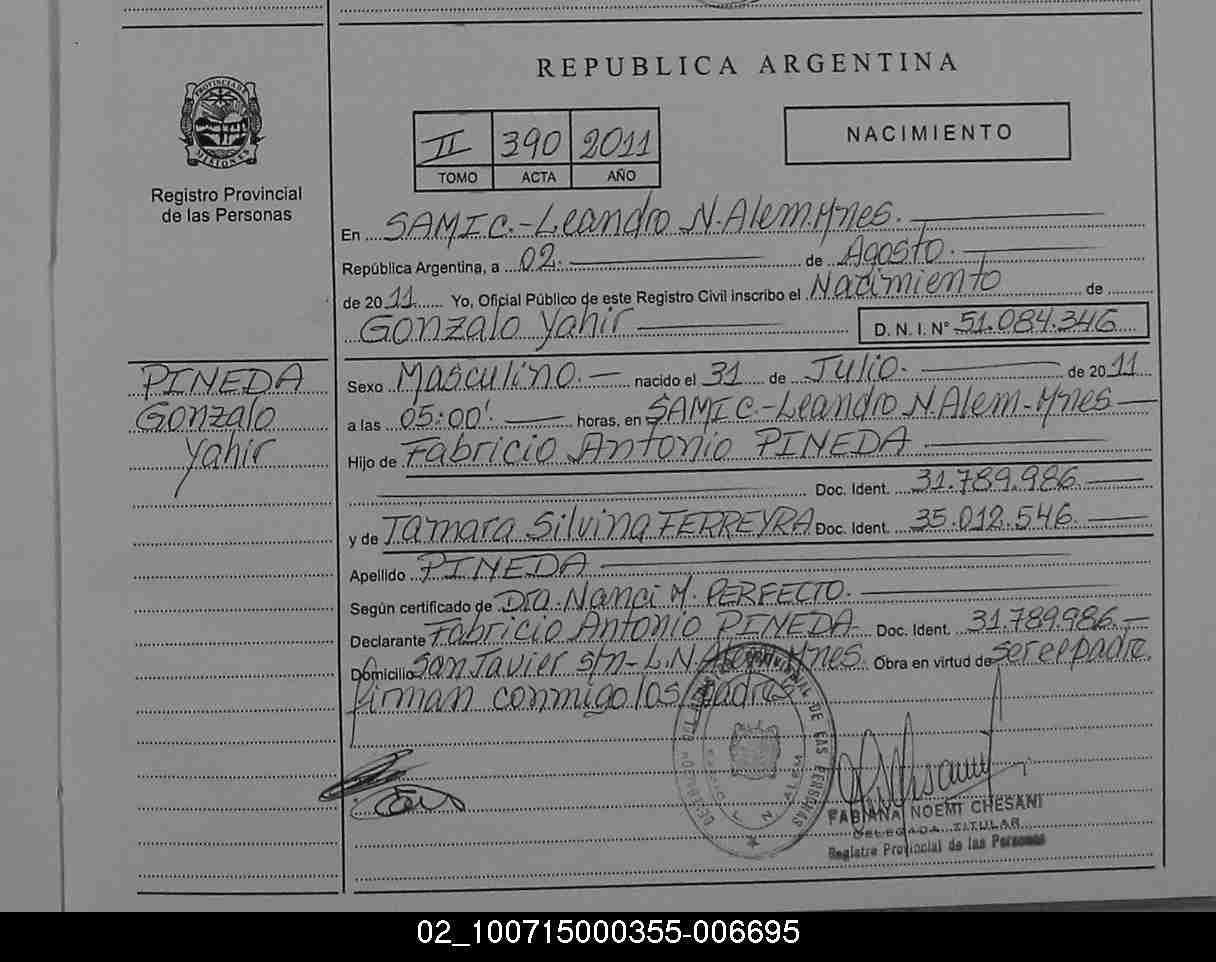 REPUBLICA ARGENTINA
PROVINCIA DE
MISIONES
Registro Provincial
de las Personas
II 390 2011
TOMO ACTA AÑO
NACIMIENTO
En SAMIC.-Leandro N. Alem. Mnes.
República Argentina, a 02. de Agosto.
de 2011 Yo, Oficial Público de este Registro Civil inscribo el Nacimiento de
Gonzalo Yahir D. N. I. N° 51.084.346
PINEDA
Gonzalo
Yahir
Sexo Masculino. nacido el 31 de Julio. de 2011
a las 05:00'. horas, en SAMIC.-Leandro N. Alem.-Mnes
Hijo de Fabricio Antonio PINEDA
Doc. Ident. 31.789.986.
y de Tamara Silvina FERREYRA Doc. Ident. 35.012.546.
Apellido PINEDA
Según certificado de Dra. Nanci M. PERFECTO.
Declarante Fabricio Antonio PINEDA Doc. Ident. 31.789.986.
Domicilio San Javier s/n- L.N. Alem. Mnes. Obra en virtud de ser el padre.
firman conmigo los padres
DE LAS PERSONAS
FABIANA NOEMI CHESANI
DELEGADA TITULAR
Registro Provincial de las Personas
02_100715000355-006695